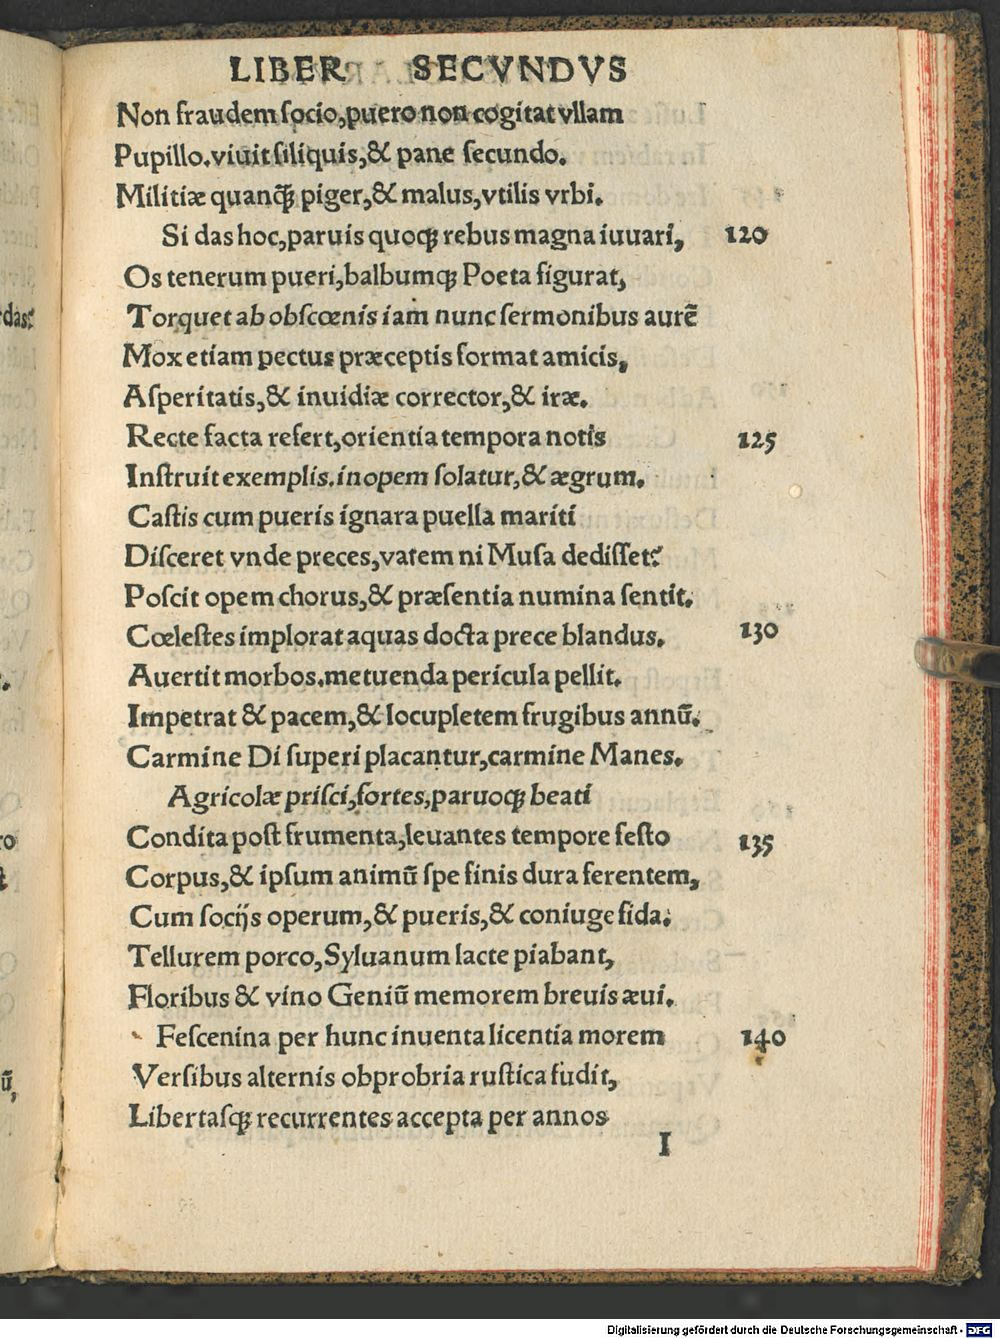 LIBER SECVNDVS
Non fraudem ſocio,puero non cogitat vllam
Pupillo.viuit ſiliquis,& pane ſecundo.
Militiæ quanꝗ̃ piger,& malus,vtilis vrbi.
Si das hoc,paruis quoqꝫ rebus magna iuuari, 120
Os tenerum pueri,balbumqꝫ Poeta figurat,
Torquet ab obſcœnis iam nunc ſermonibus aurẽ
Mox etiam pectus præceptis format amicis,
Aſperitatis,& inuidiæ corrector,& iræ.
Recte facta refert,orientia tempora notis 125
Inſtruit exemplis.inopem ſolatur,& ægrum.
Caſtis cum pueris ignara puella mariti
Diſceret vnde preces,vatem ni Muſa dediſſet?
Poſcit opem chorus,& præſentia numina ſentit.
Cœleſtes implorat aquas docta prece blandus. 130
Auertit morbos.metuenda pericula pellit.
Impetrat & pacem,& locupletem frugibus annũ.
Carmine Di ſuperi placantur,carmine Manes.
Agricolæ priſci,fortes,paruoqꝫ beati
Condita poſt frumenta,leuantes tempore feſto 135
Corpus,& ipſum animũ ſpe finis dura ferentem,
Cum ſocijs operum,& pueris,& coniuge fida:
Tellurem porco,Syluanum lacte piabant,
Floribus & vino Geniũ memorem breuis æui.
Feſcenina per hunc inuenta licentia morem 140
Verſibus alternis obprobria ruſtica fudit,
Libertaſqꝫ recurrentes accepta per annos
I
das?
ro
ũ,
Digitalisierung gefördert durch die Deutsche Forschungsgemeinschaft - DFG